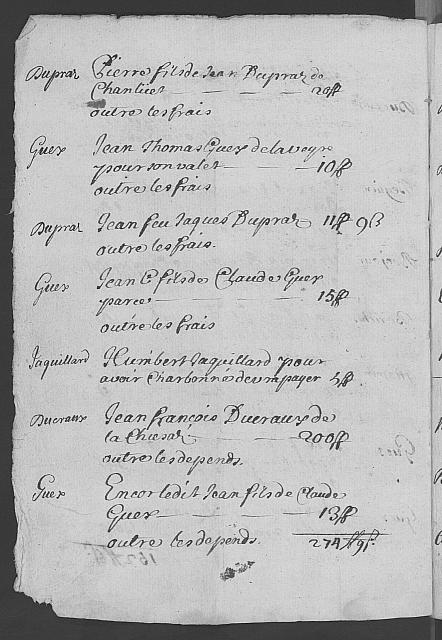 Dupraz Pierre fils de Jean Dupraz de
Chantiiet 20ff
outre les frais
Guex Jean Thomas Guex de laveyre
pour son valet 10ff
outre les frais
Dupraz Jean feu Jaques Dupraz 11ff 9ß
outre les frais.
Guex Jean L. fils de Claude Guex
parce 15ff
outre les frais
Jaquillard Humbert Jaquillard pour
avoir Charbonné devoir payer 5ff
Ducraux Jean françois Ducraux de
la Chiesaz 200ff
outre les depends.
Guex Encor ledit Jean fils de Claude
Guex 13ff
outre les depends. 274ff 9ß.